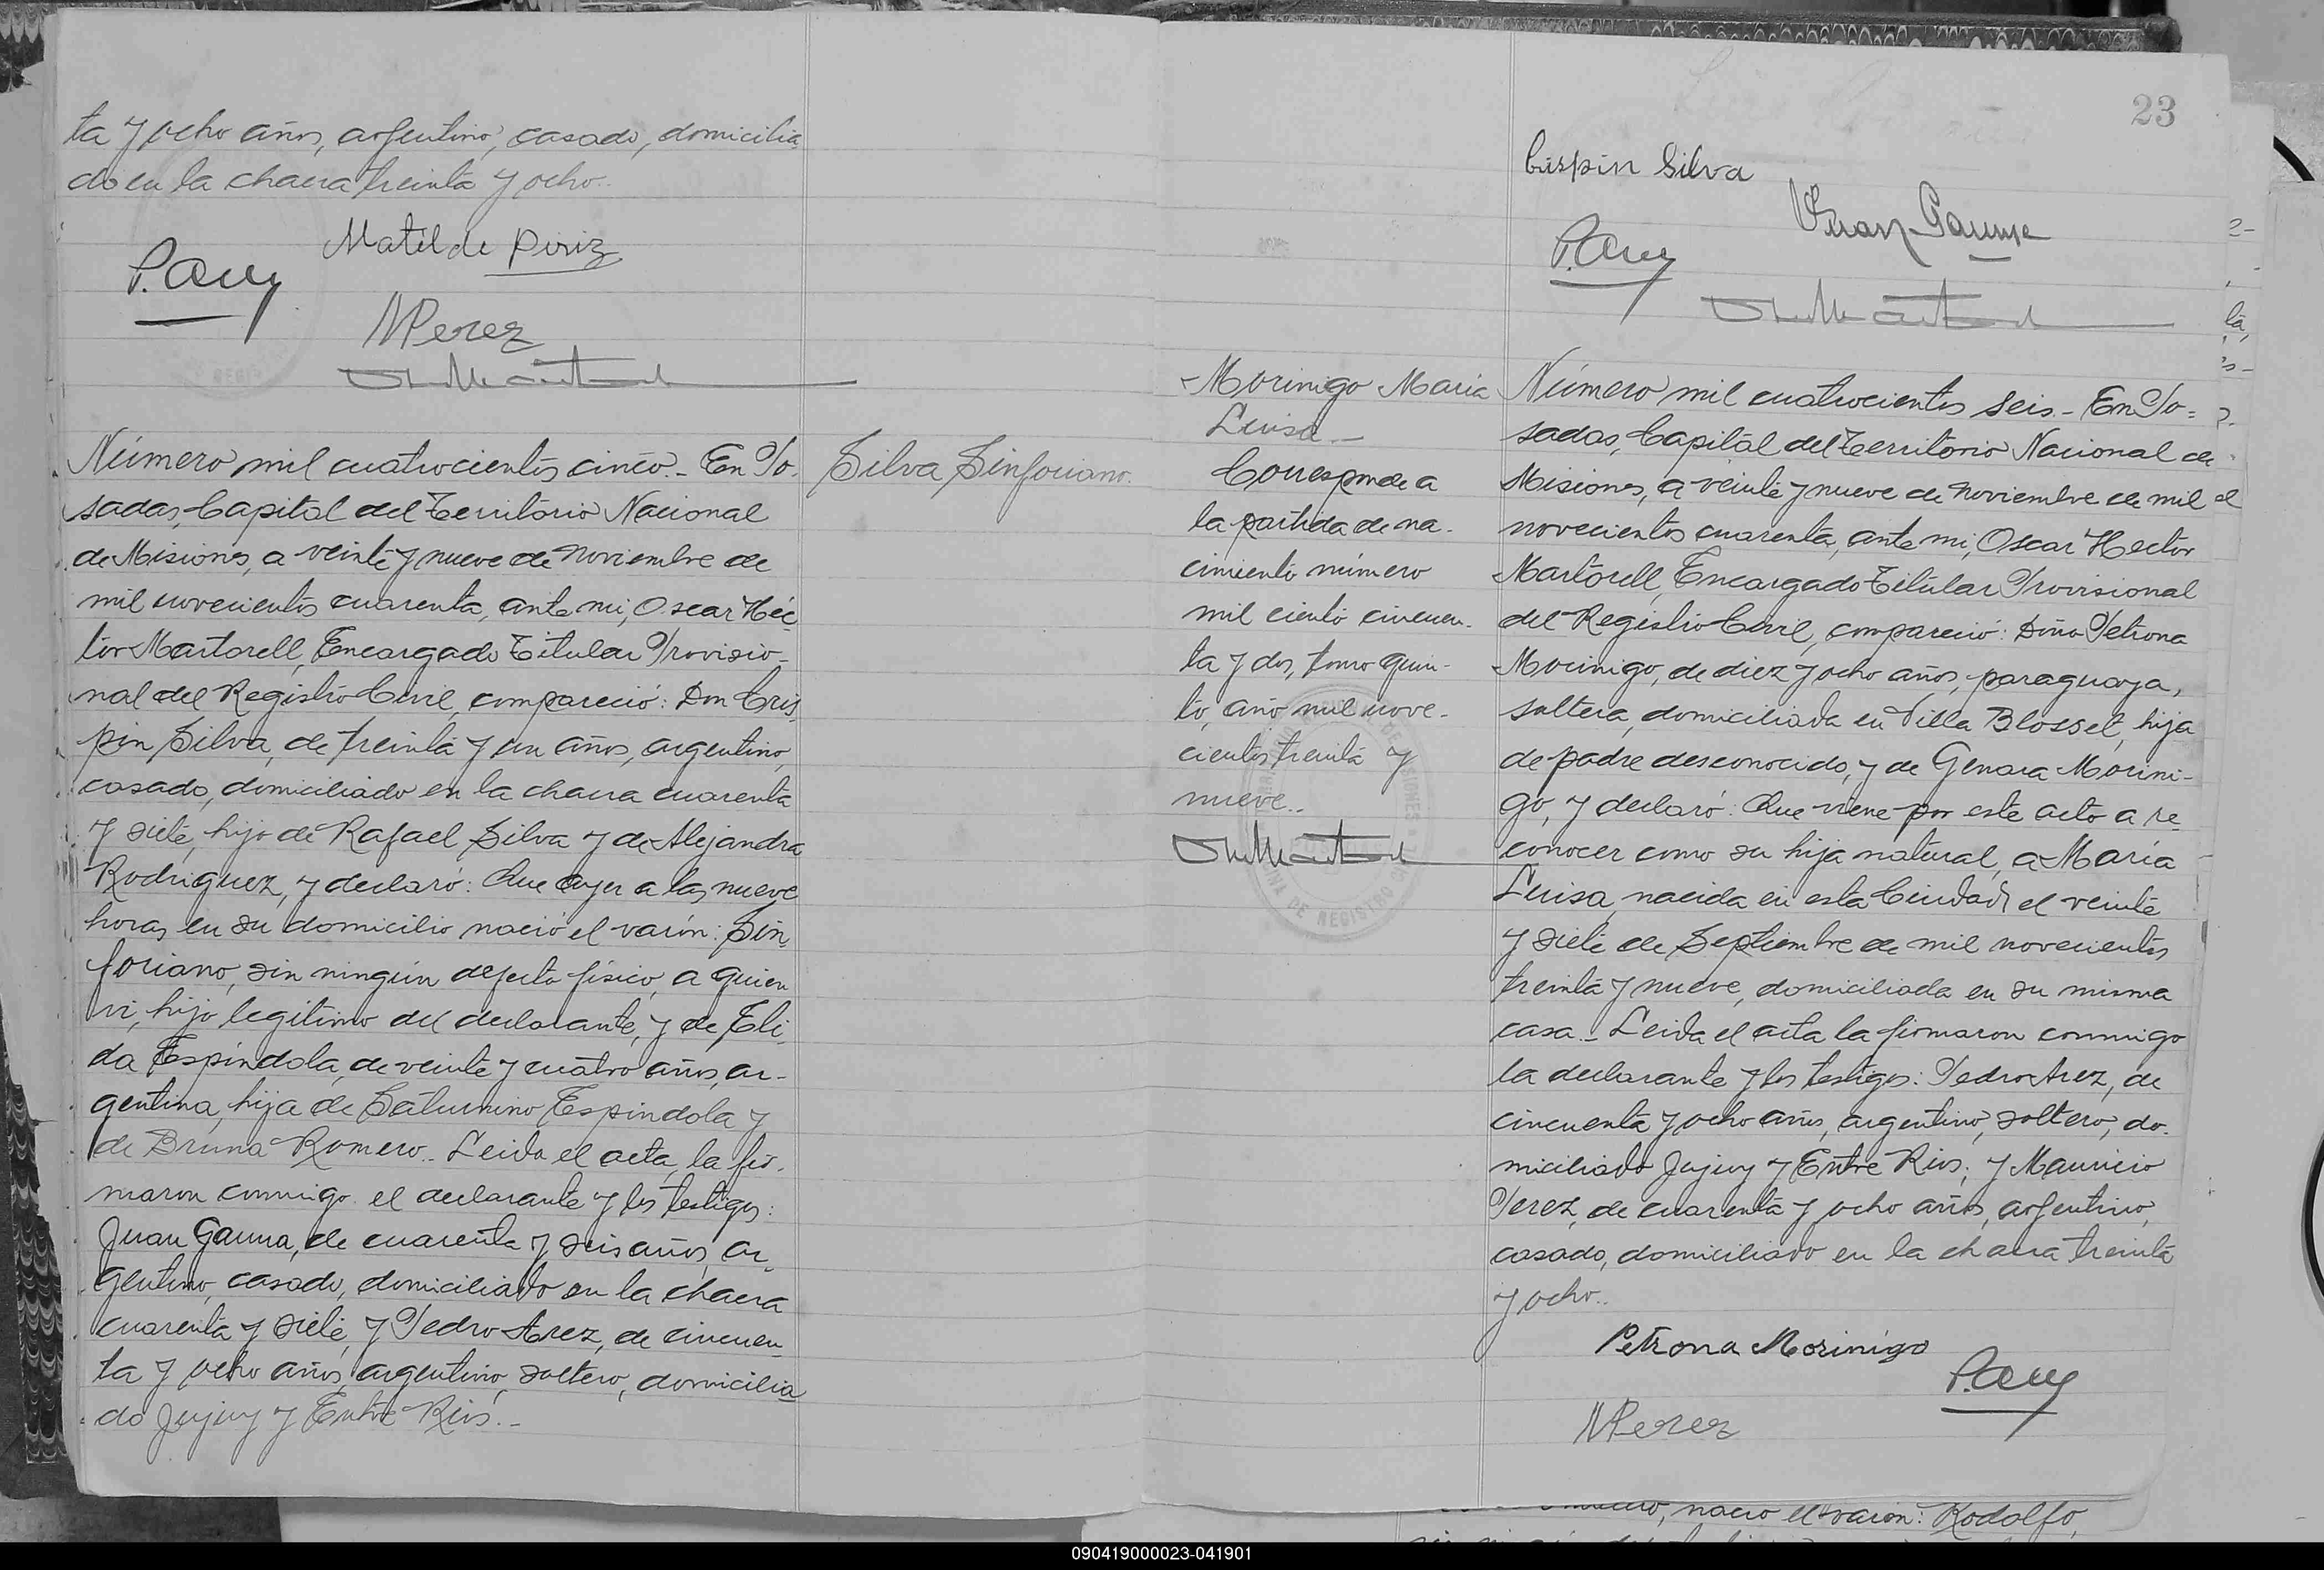 ta y ocho años, argentino, casado, domicilia
do en la chacra treinta y ocho..
Matilde Piriz
P. Arez
MPerez
Número mil cuatrocientos cinco.- En Po-
sadas, Capital del Territorio Nacional
de Misiones, a veinte y nueve de noviembre de
mil novecientos cuarenta, ante mi, Oscar Héc-
tor Martorell, Encargado Titular Provisio-
nal del Registro Civil, compareció: Don Cris-
pin Silva, de treinta y un años, argentino,
casado, domiciliado en la chacra cuarenta
y siete, hijo de Rafael Silva y de Alejandra
Rodriguez, y declaró: Que ayer a las nueve
horas en su domicilio nació el varón: Sin-
foriano, sin ningún defecto físico, a quien
vi, hijo legítimo del declarante, y de Eli-
da Espíndola, de veinte y cuatro años, ar-
gentina, hija de Saturnino Espindola y
de Bruna Romero.. Leida el acta, la fir-
maron conmigo el declarante y los testigos:
Juan Gauna, de cuarenta y seis años, ar-
gentino, casado, domiciliado en la chacra
cuarenta y siete, y Pedro Arez, de cincuen-
ta y ocho años, argentino, soltero, domicilia
do Jujuy y Entre Rios.-
Silva Sinforiano.
23
Crispin Silva
Juan Gauna
P. Arez
Morinigo Maria
Luisa.-
Corresponde a
la partida de na-
cimiento número
mil ciento cincuen-
ta y dos, tomo quin-
to, año mil nove-
cientos treinta y
nueve..
Número mil cuatrocientos seis.- En Po=
sadas, Capital del Territorio Nacional de
Misiones, a veinte y nueve de noviembre de mil
novecientos cuarenta, ante mi, Oscar Hector
Martorell, Encargado Titular Provisional
del Registro Civil, compareció: Doña Petrona
Morinigo, de diez y ocho años, paraguaya,
soltera, domiciliada en Villa Blosset, hija
de padre desconocido, y de Genara Morini-
go, y declaró: Que viene por este acto a re-
conocer como su hija natural, a María
Luisa, nacida en esta Ciudad el veinte
y siete de Septiembre de mil novecientos
treinta y nueve, domiciliada en su misma
casa.- Leida el acta la firmaron conmigo
la declarante y los testigos: Pedro Arez, de
cincuenta y ocho años, argentino, soltero, do-
miciliado Jujuy y Entre Rios; y Mauricio
Perez, de cuarenta y ocho años, argentino,
casado, domiciliado en la chacra treinta
y ocho..
Petrona Morinigo
P. Arez
MPerez
nació el varón: Rodolfo,
090419000023-041901